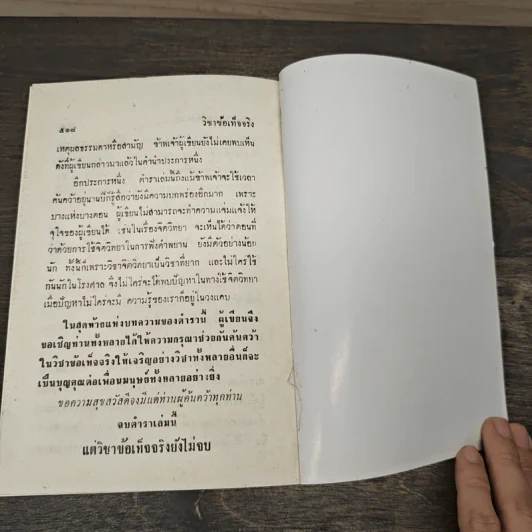 ๕๑๘ วิชาข้อเท็จจริง
เหตุผลธรรมดาหรือสามัญ ข้าพเจ้าผู้เขียนยังไม่เคยพบเห็น
ดังที่ผู้เขียนกล่าวมาแล้วในคำนำประการหนึ่ง
อีกประการหนึ่ง ตำราเล่มนี้ถึงแม้ข้าพเจ้าจะใช้เวลา
ค้นคว้าอยู่นานปีก็รู้สึกว่ายังมีความบกพร่องอีกมาก เพราะ
บางแห่งบางตอน ผู้เขียนไม่สามารถจะทำความแจ่มแจ้งให้
จุใจของผู้เขียนได้ เช่นในเรื่องจิตวิทยา จะเห็นได้ว่าตอนที่
ว่าด้วยการใช้จิตวิทยาในการฟังคำพยาน ยังมีตัวอย่างน้อย
นัก ทั้งนี้ก็เพราะวิชาจิตวิทยาเป็นวิชาที่ยาก และไม่ใคร่ใช้
กันนักในโรงศาล จึงไม่ใคร่จะได้พบปัญหาในทางใช้จิตวิทยา
เมื่อปัญหาไม่ใคร่จะมี ความรู้ของเราก็อยู่ในวงแคบ
ในสุดท้ายแห่งบทความของตำรานี้ ผู้เขียนจึง
ขอเชิญท่านทั้งหลายได้ให้ความกรุณาช่วยกันค้นคว้า
ในวิชาข้อเท็จจริงให้เจริญอย่างวิชาทั้งหลายอื่นก็จะ
เป็นบุญคุณต่อเพื่อนมนุษย์ทั้งหลายอย่างยิ่ง
ขอความสุขสวัสดีจงมีแด่ท่านผู้ค้นคว้าทุกท่าน
จบตำราเล่มนี้
แต่วิชาข้อเท็จจริงยังไม่จบ